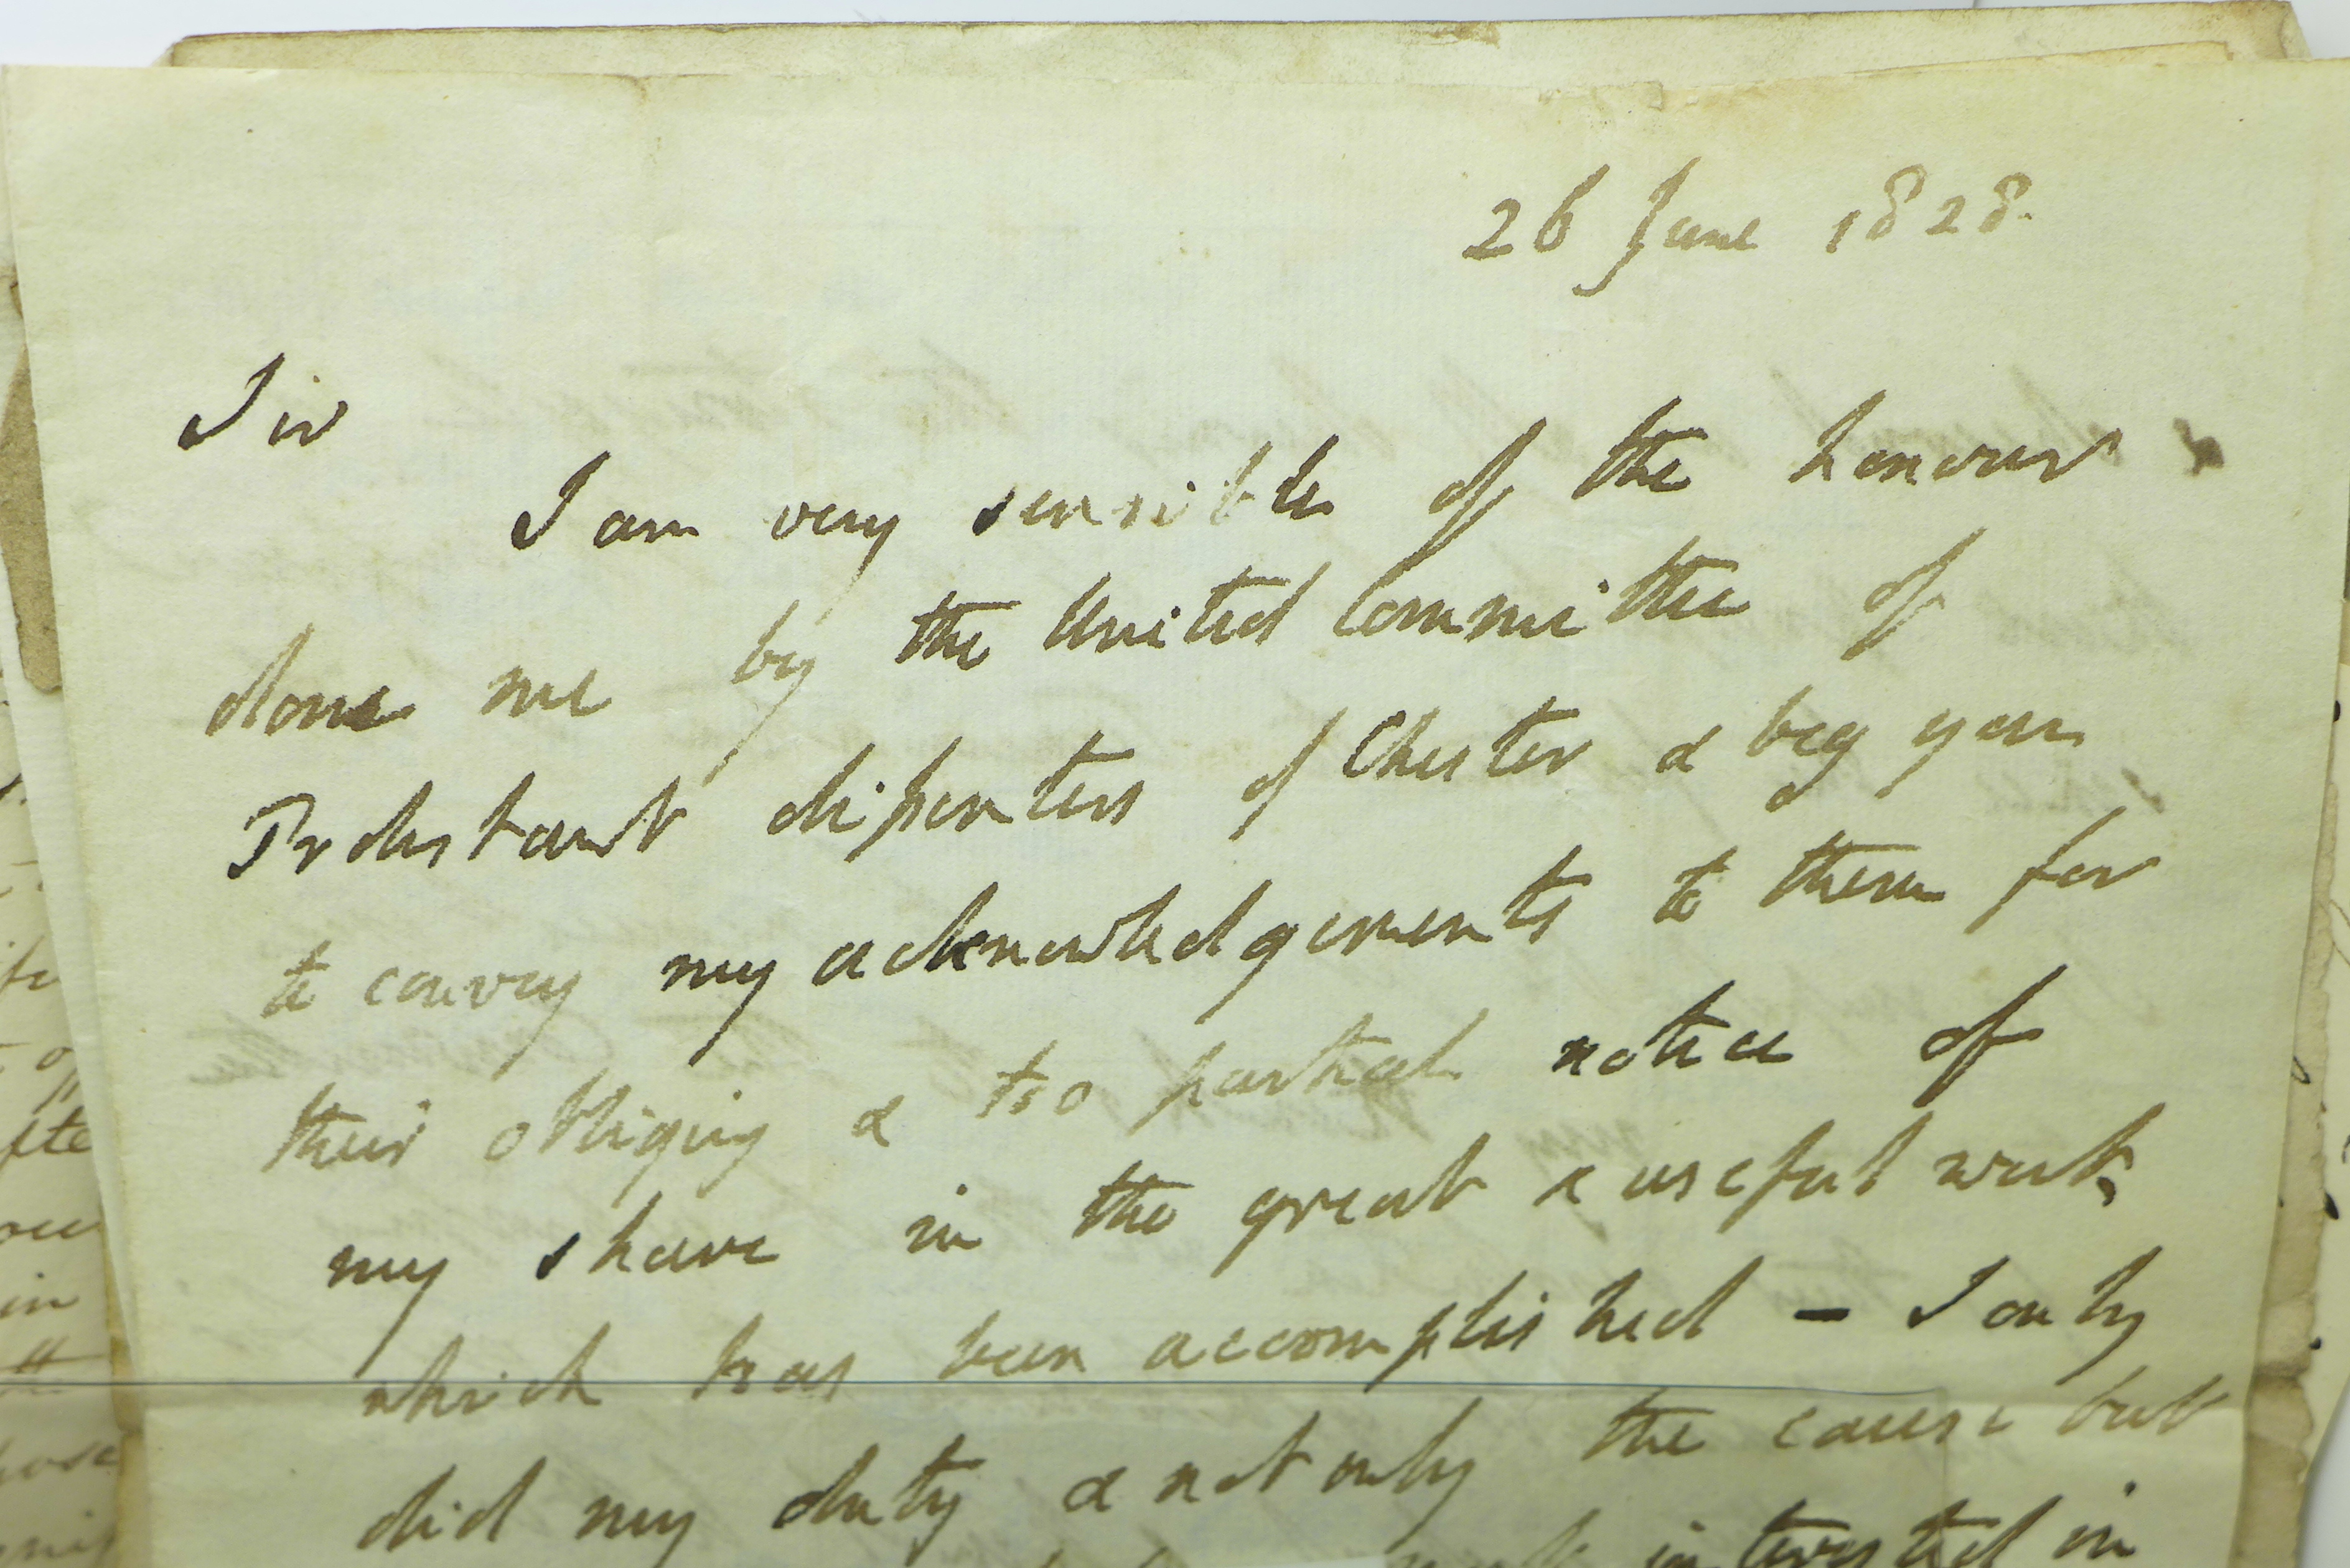 26 June 1828.
Sir
I am very sensible of the honour
done me by the United Committee of
Protestant dissenters of Chester & beg you
to convey my acknowledgements to them for
their obliging & too partial notice of
my share in the great & useful work
which has been accomplished – I only
did my duty & not only the cause but
interested in